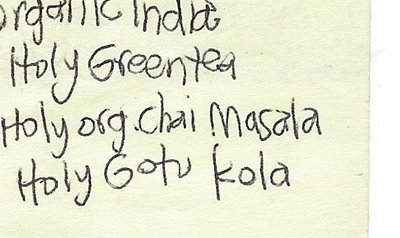 organic India
Holy Greentea
Holy org. chai Masala
Holy Gotu kola